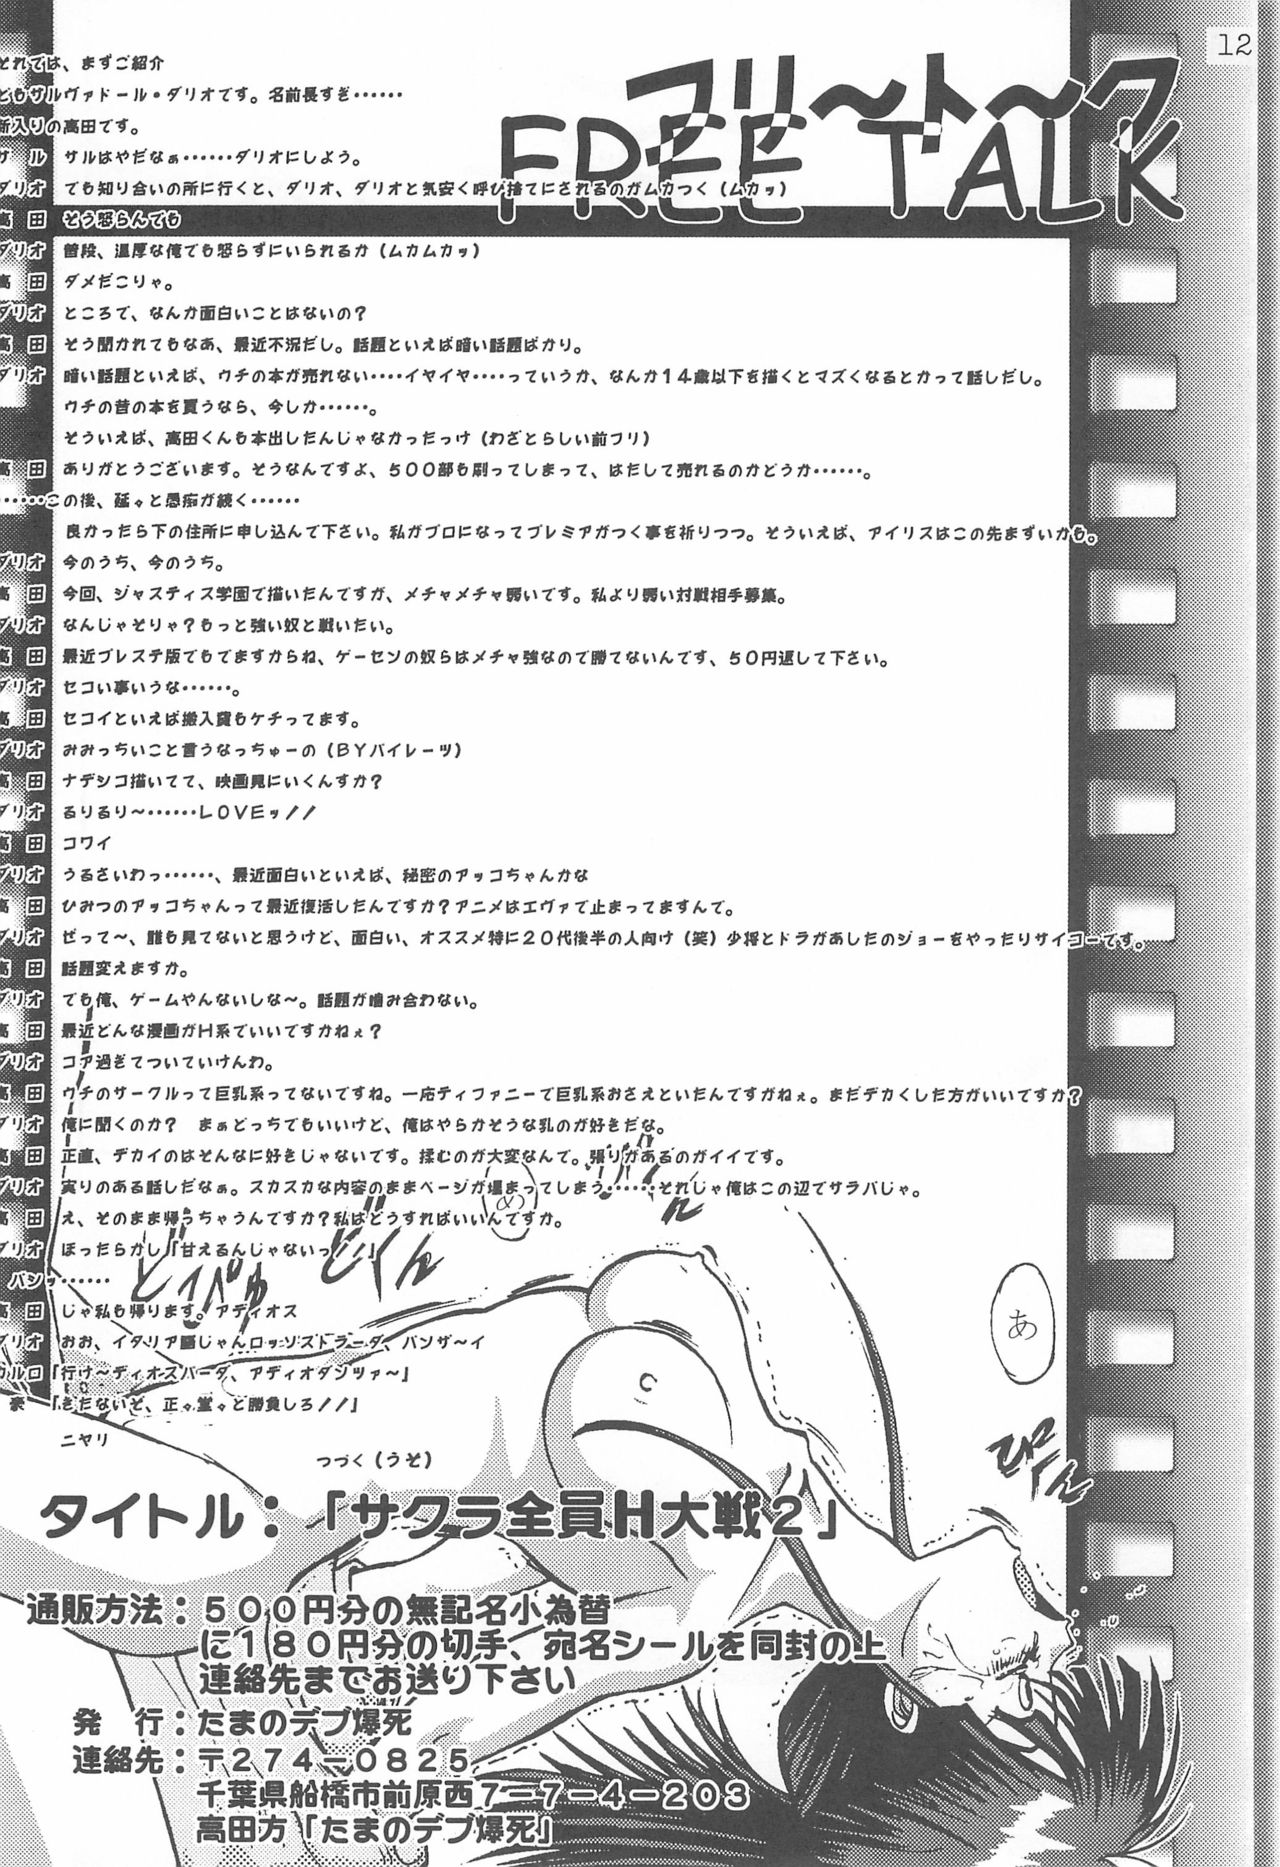 12
フリ〜ト〜ク
FREE TALK
それでは、まずご紹介
どもサルヴァドール・ダリオです。名前長すぎ……
新入りの高田です。
サル サルはやだなぁ……ダリオにしよう。
ダリオ でも知り合いの所に行くと、ダリオ、ダリオと気安く呼び捨てにされるのがムカつく（ムカッ）
高田 そう怒らんでも
ダリオ 普段、温厚な俺でも怒らずにいられるか（ムカムカッ）
高田 ダメだこりゃ。
ダリオ ところで、なんか面白いことはないの？
高田 そう聞かれてもなあ、最近不況だし。話題といえば暗い話題ばかり。
ダリオ 暗い話題といえば、ウチの本が売れない‥‥イヤイヤ‥‥っていうか、なんか１４歳以下を描くとマズくなるとかって話しだし。
ウチの昔の本を買うなら、今しか……。
そういえば、高田くんも本出したんじゃなかったっけ（わざとらしい前フリ）
高田 ありがとうございます。そうなんですよ、５００部も刷ってしまって、はたして売れるのかどうか……。
……この後、延々と愚痴が続く……
良かったら下の住所に申し込んで下さい。私がプロになってプレミアがつく事を祈りつつ。そういえば、アイリスはこの先まずいかも。
ダリオ 今のうち、今のうち。
高田 今回、ジャスティス学園で描いたんですが、メチャメチャ弱いです。私より弱い対戦相手募集。
ダリオ なんじゃそりゃ？もっと強い奴と戦いたい。
高田 最近プレステ版でもでますからね、ゲーセンの奴らはメチャ強なので勝てないんです、５０円返して下さい。
ダリオ セコい事いうな……。
高田 セコイといえば搬入費もケチってます。
ダリオ みみっちいこと言うなっちゅーの（ＢＹパイレーツ）
高田 ナデシコ描いてて、映画見にいくんすか？
ダリオ るりるり〜……ＬＯＶＥッ！！
高田 コワイ
ダリオ うるさいわっ……、最近面白いといえば、秘密のアッコちゃんかな
高田 ひみつのアッコちゃんって最近復活したんですか？アニメはエヴァで止まってますんで。
ダリオ ぜって〜、誰も見てないと思うけど、面白い、オススメ特に２０代後半の人向け（笑）少将とドラがあしたのジョーをやったりサイコーです。
高田 話題変えますか。
ダリオ でも俺、ゲームやんないしな〜。話題が噛み合わない。
高田 最近どんな漫画がＨ系でいいですかねぇ？
ダリオ コア過ぎてついていけんわ。
高田 ウチのサークルって巨乳系ってないですね。一応ティファニーで巨乳系おさえといたんですがねぇ。まだデカくした方がいいですか？
ダリオ 俺に聞くのか？ まぁどっちでもいいけど、俺はやらかそうな乳のが好きだな。
高田 正直、デカイのはそんなに好きじゃないです。揉むのが大変なんで。張りがあるのがイイです。
ダリオ 実りのある話しだなぁ。スカスカな内容のままページが埋まってしまう……それじゃ俺はこの辺でサラバじゃ。
高田 え、そのまま帰っちゃうんですか？私はどうすればいいんですか。
ダリオ ほったらかし「甘えるんじゃないっ
バンッ……
高田 じゃ私も帰ります。アディオス
ダリオ おお、イタリア語じゃんロッソストラーダ、バンザ〜イ
カルロ「行け〜ディオスパーダ、アディオダンツァ〜」
豪 「きたないぞ、正々堂々と勝負しろ！！」
ニヤリ
つづく（うそ）
あ
タイトル：「サクラ全員Ｈ大戦２」
通販方法：５００円分の無記名小為替
に１８０円分の切手、宛名シールを同封の上
連絡先までお送り下さい
発 行：たまのデブ爆死
連絡先：〒２７４－０８２５
千葉県船橋市前原西７－７－４－２０３
高田方「たまのデブ爆死」